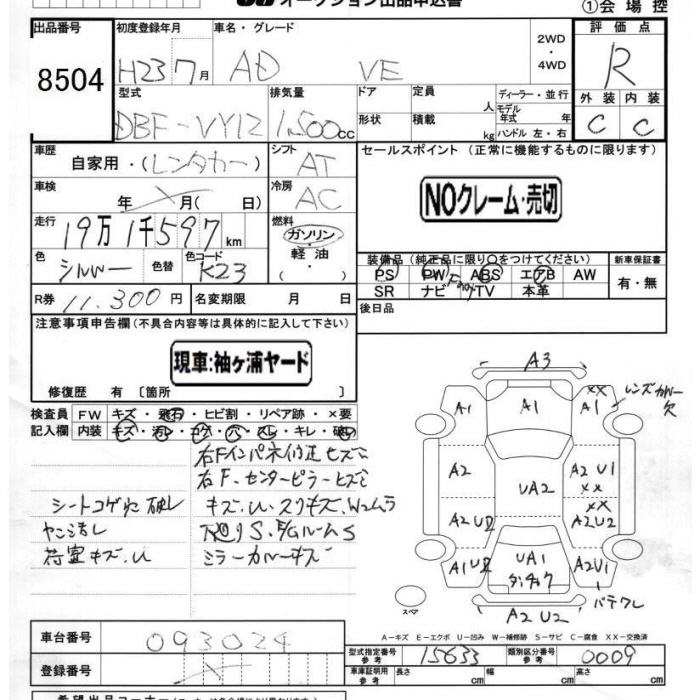 オークション出品申込書
①会場控
出品番号
8504
初度登録年月
H23 7月
車名・グレード
AD VE
2WD
・
4WD
評価点
R
型式
DBF-VY12
排気量
1,500cc
ドア
形状
定員
人
積載
kg
ディーラー・並行
モデル年式 年
ハンドル 左・右
外装 内装
C C
車歴
自家用・(レンタカー)
シフト
AT
セールスポイント (正常に機能するものに限ります)
NOクレーム・売切
車検
年 月( 日)
冷房
AC
走行
19万1千597km
燃料
ガソリン・
軽油
・( )
色
シルバー
色替
色コード
K23
装備品(純正品に限り○をつけてください)
PS PW ABS エアB AW
SR ナビ TV 本革
新車保証書
有・無
R券 11,300円
名変期限 月 日
後日品
注意事項申告欄(不具合内容等は具体的に記入して下さい)
現車:袖ヶ浦ヤード
修復歴 有〔箇所 〕
検査員 FW キズ・飛石・ヒビ割・リペア跡・×要
記入欄 内装 キズ・汚レ・コゲ・穴・スレ・キレ・破レ
右Fインパネ修正キズミ
右F.センターピラーヒズミ
シートコゲ穴 破レ
キズ.U.スリキズ.Wムラ
ヤニ汚レ
下廻りS.E/GルームS
荷室キズ.U
ミラーカバーキズ
A3
A1 A1 XX A1 レンズカバー欠
A2 UA2 A2 U1 XX
A2U2 XX A2U2
A1U2 UA1 A2U1
バテクレ
A2 U2
スペア
A-キズ E-エクボ U-凹み W-補修跡 S-サビ C-腐食 XX-交換済
車台番号
093024
登録番号
型式指定番号
参考
15633
類別区分番号
参考
0009
車庫証明用
参考
長さ cm 幅 cm 高さ cm